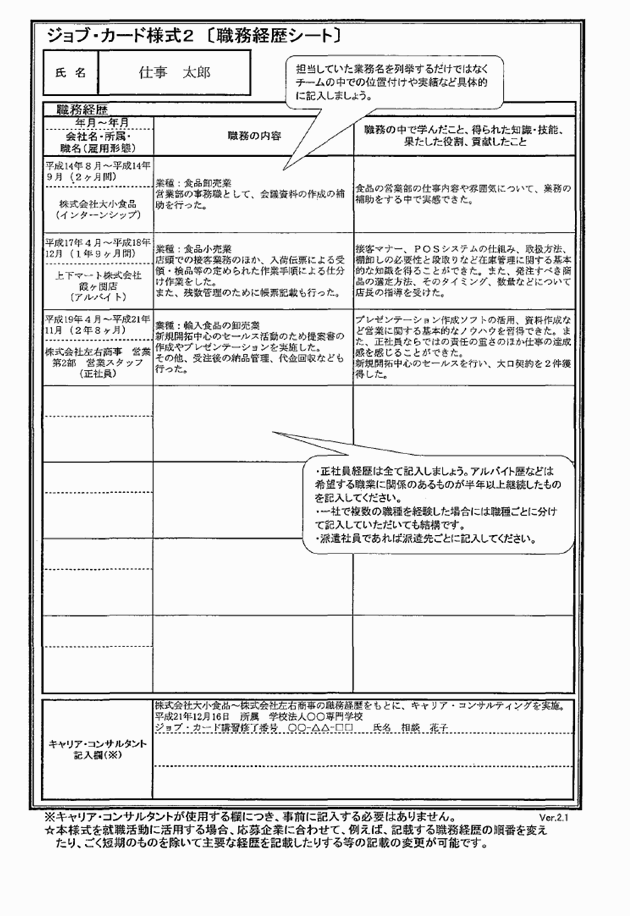 ジョブ・カード様式２〔職務経歴シート〕
氏 名
仕事 太郎
担当していた業務名を列挙するだけではなく
チームの中での位置付けや実績など具体的
に記入しましょう。
職務経歴
年月～年月
会社名・所属・
職名（雇用形態）
職務の内容
職務の中で学んだこと、得られた知識・技能、
果たした役割、貢献したこと
平成14年８月～平成14年
９月（２ヶ月間）
株式会社大小食品
（インターンシップ）
業種：食品卸売業
営業部の事務職として、会議資料の作成の補
助を行った。
食品の営業部の仕事内容や雰囲気について、業務の
補助をする中で実感できた。
平成17年４月～平成18年
12月（１年９ヶ月間）
上下マート株式会社
霞ヶ関店
（アルバイト）
業種：食品小売業
店頭での接客業務のほか、入荷伝票による受
領・検品等の定められた作業手順による仕分
け作業をした。
また、残数管理のために帳票記載も行った。
接客マナー、ＰＯＳシステムの仕組み、取扱方法、
棚卸しの必要性と段取りなど在庫管理に関する基本
的な知識を得ることができた。また、発注すべき商
品の選定方法、そのタイミング、数量などについて
店長の指導を受けた。
平成19年４月～平成21年
11月（２年８ヶ月）
株式会社左右商事 営業
第2部 営業スタッフ
（正社員）
業種：輸入食品の卸売業
新規開拓中心のセールス活動のため提案書の
作成やプレゼンテーションを実施した。
その他、受注後の納品管理、代金回収なども
行った。
プレゼンテーション作成ソフトの活用、資料作成な
ど営業に関する基本的なノウハウを習得できた。ま
た、正社員ならではの責任の重さのほか仕事の達成
感を感じることができた。
新規開拓中心のセールスを行い、大口契約を２件獲
得した。
・正社員経歴は全て記入しましょう。アルバイト歴などは
希望する職業に関係のあるものが半年以上継続したもの
を記入してください。
・一社で複数の職種を経験した場合には職種ごとに分け
て記入していただいても結構です。
・派遣社員であれば派遣先ごとに記入してください。
キャリア・コンサルタント
記入欄（※）
株式会社大小食品～株式会社左右商事の職務経歴をもとに、キャリア・コンサルティングを実施。
平成21年12月16日 所属 学校法人〇〇専門学校
ジョブ・カード講習修了番号 〇〇-△△-□□ 氏名 相談 花子
※キャリア・コンサルタントが使用する欄につき、事前に記入する必要はありません。
Ver.2.1
☆本様式を就職活動に活用する場合、応募企業に合わせて、例えば、記載する職務経歴の順番を変え
たり、ごく短期のものを除いて主要な経歴を記載したりする等の記載の変更が可能です。